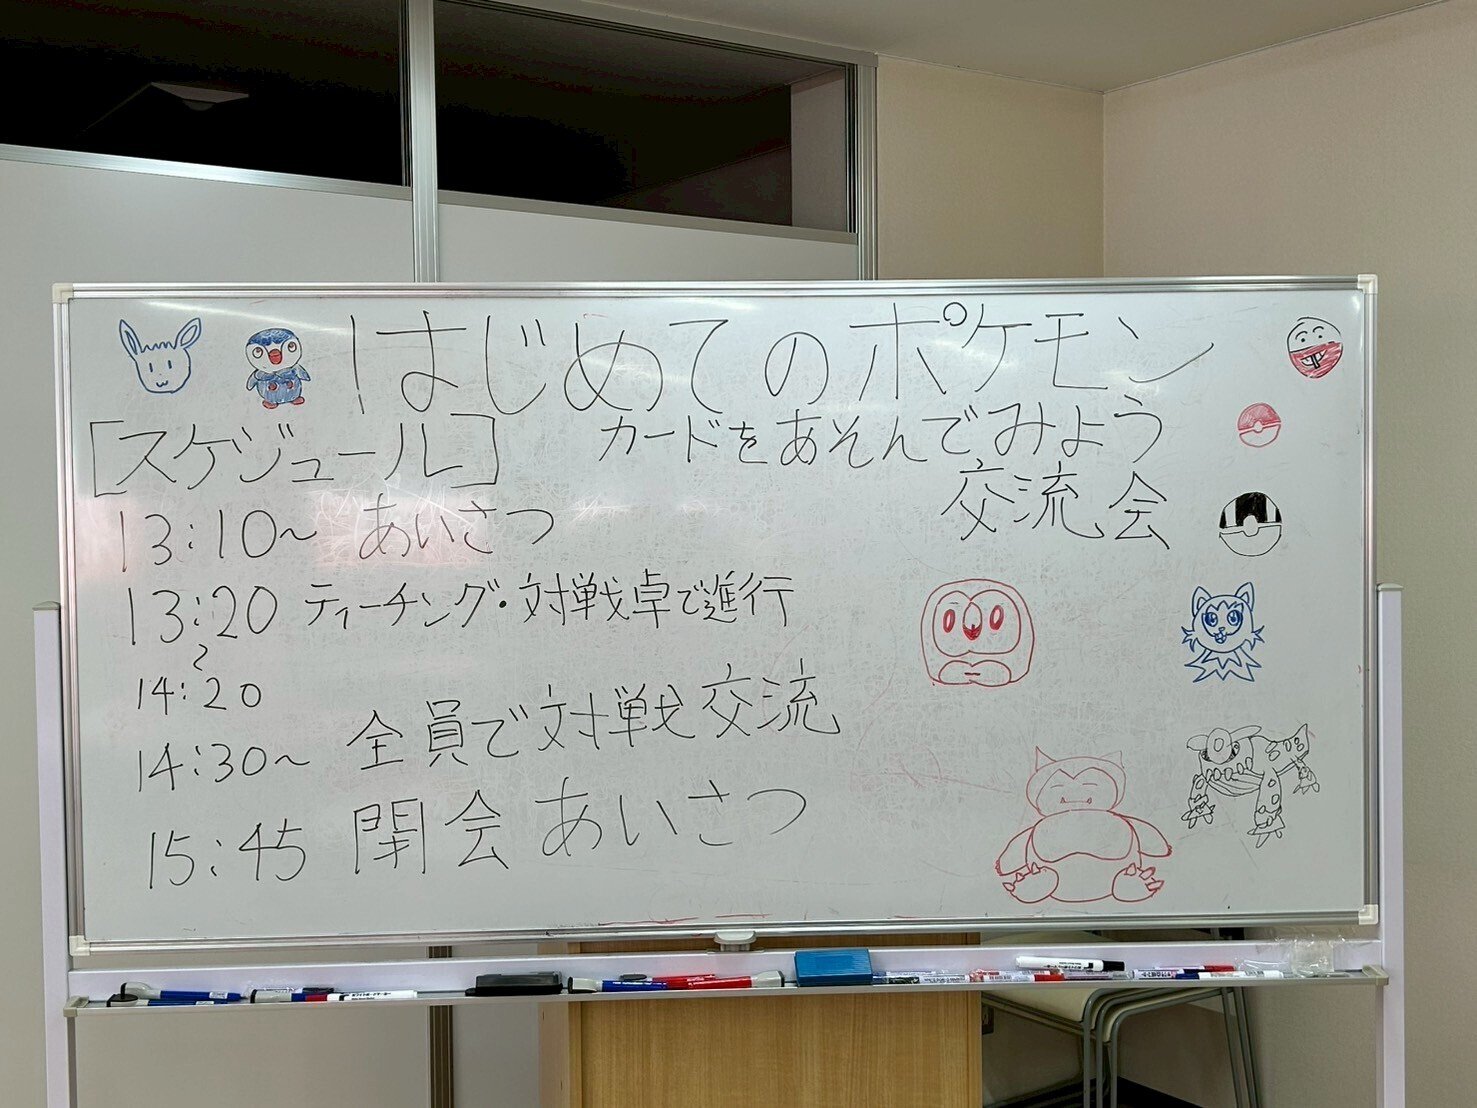 はじめてのポケモン
カードをあそんでみよう
交流会
[スケジュール]
13:10~ あいさつ
13:20 ティーチング・対戦卓で進行
~
14:20
14:30~ 全員で対戦交流
15:45 閉会あいさつ